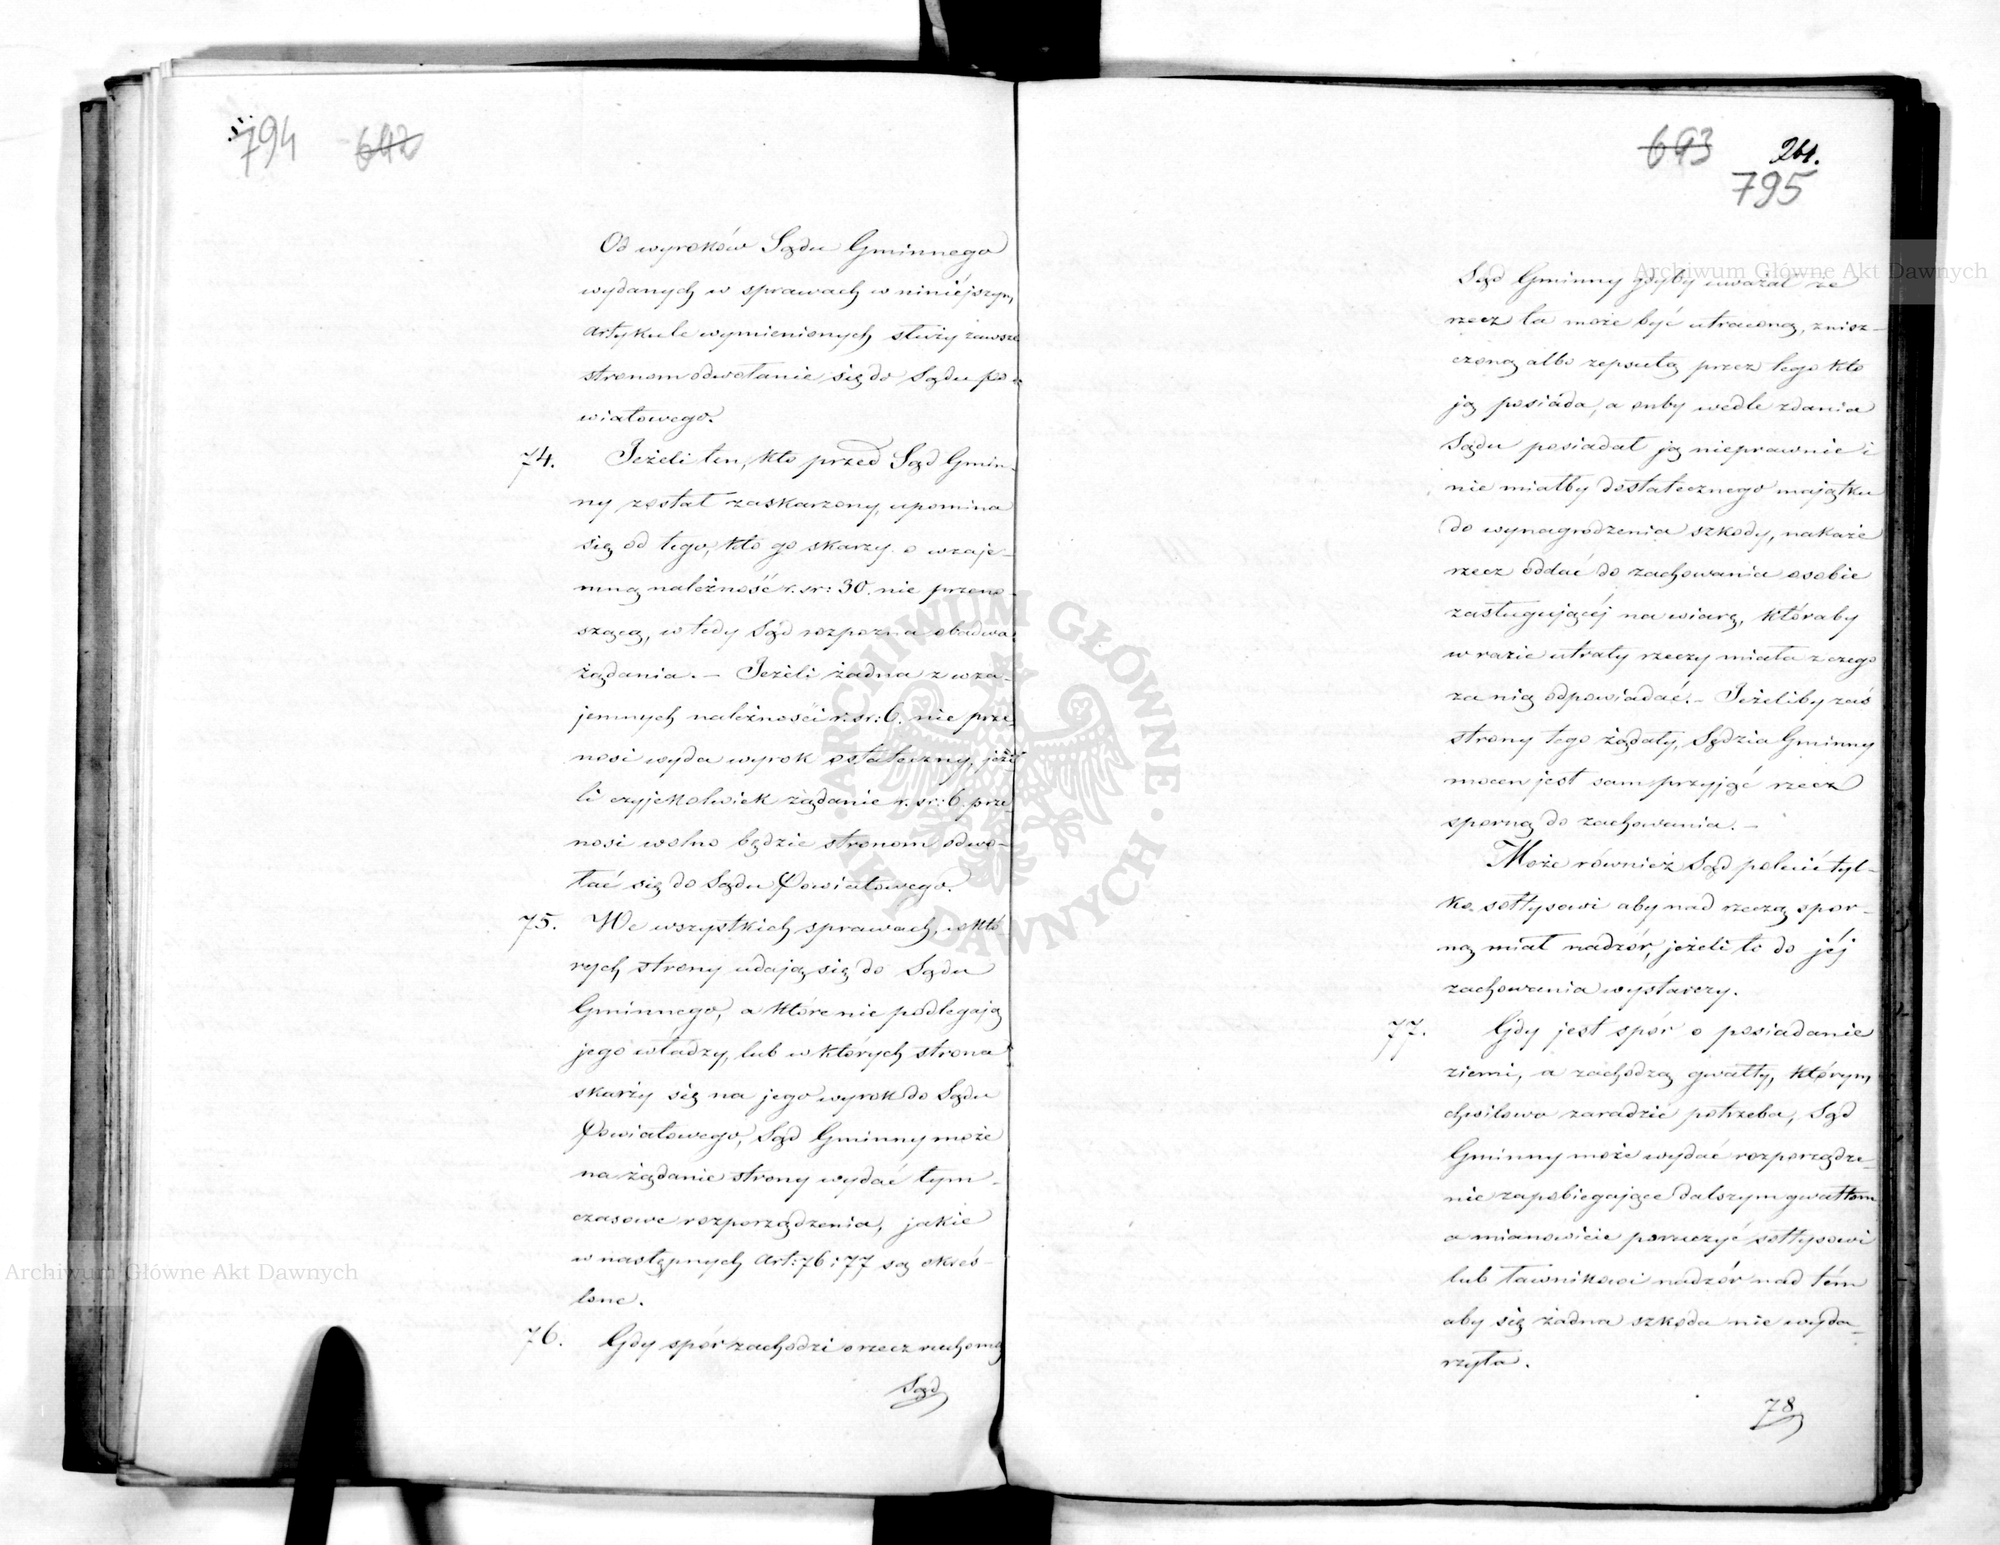 794 642
Od wyroków Sądu Gminnego
wydanych w sprawach w niniéjszym
artykule wymienionych służy zawsze
stronom odwołanie się do Sądu Po-
wiatowego.
74. Jeżeli ten, kto przed Sąd Gmin-
ny został zaskarzony, upomina
się od tego, kto go skarzy o wzaje-
mną należność r. sr: 30. nie przeno-
szącą, wtedy Sąd rozpozna obadwa
żądania. — Jeżeli żadna z wza-
jemnych należności r. sr: 6. nie prze-
nosi wyda wyrok ostateczny, jeże
li czyjekolwiek żądanie r. sr: 6. prze
nosi wolno będzie stronom odwo-
łać się do Sądu Powiatowego.
75. We wszystkich sprawach, w któ
rych strony udają się do Sądu
Gminnego, a które nie podlegają
jego władzy, lub w których strona
skarży się na jego wyrok do Sądu
Powiatowego, Sąd Gminny może
na żądanie strony wydać tym-
czasowe rozporządzenia, jakie
w następnych Art: 76 i 77 są okréś-
lone.
76. Gdy spór zachodzi o rzecz ruchomą
Sąd
693 261.
795
Sąd Gminny gdyby uważał że
rzecz ta może być utraconą, znisz-
czoną albo zepsutą przez tego kto
ją posiada, a onby wedle zdania
Sądu posiadał ją nieprawnie i
nie miałby dostatecznego majątku
do wynagrodzenia szkody, nakaże
rzecz oddać do zachowania osobie
zasługującéj na wiarę, któraby
w razie utraty rzeczy miała z czego
za nią odpowiadać. — Jeżeliby zaś
strony tego żądały, Sędzia Gminny
mocen jest sam przyjąć rzecz
sporną do zachowania. —
Może również Sąd polecić tyl-
ko sołtysowi aby nad rzeczą spor-
ną miał nadzór, jeżeli to do jéj
zachowania wystarczy.
77. Gdy jest spór o posiadanie
ziemi, a zachodzą gwałty, którym
chwilowo zaradzić potrzeba, Sąd
Gminny może wydać rozporządze-
nie zapobiegające dalszym gwałtom
a mianowicie poruczyć sołtysowi
lub ławnikowi nadzór nad tém
aby się żadna szkoda nie wyda-
rzyła.
78
Archiwum Główne Akt Dawnych
Archiwum Główne Akt Dawnych
ARCHIWUM GŁÓWNE · AKT DAWNYCH ·